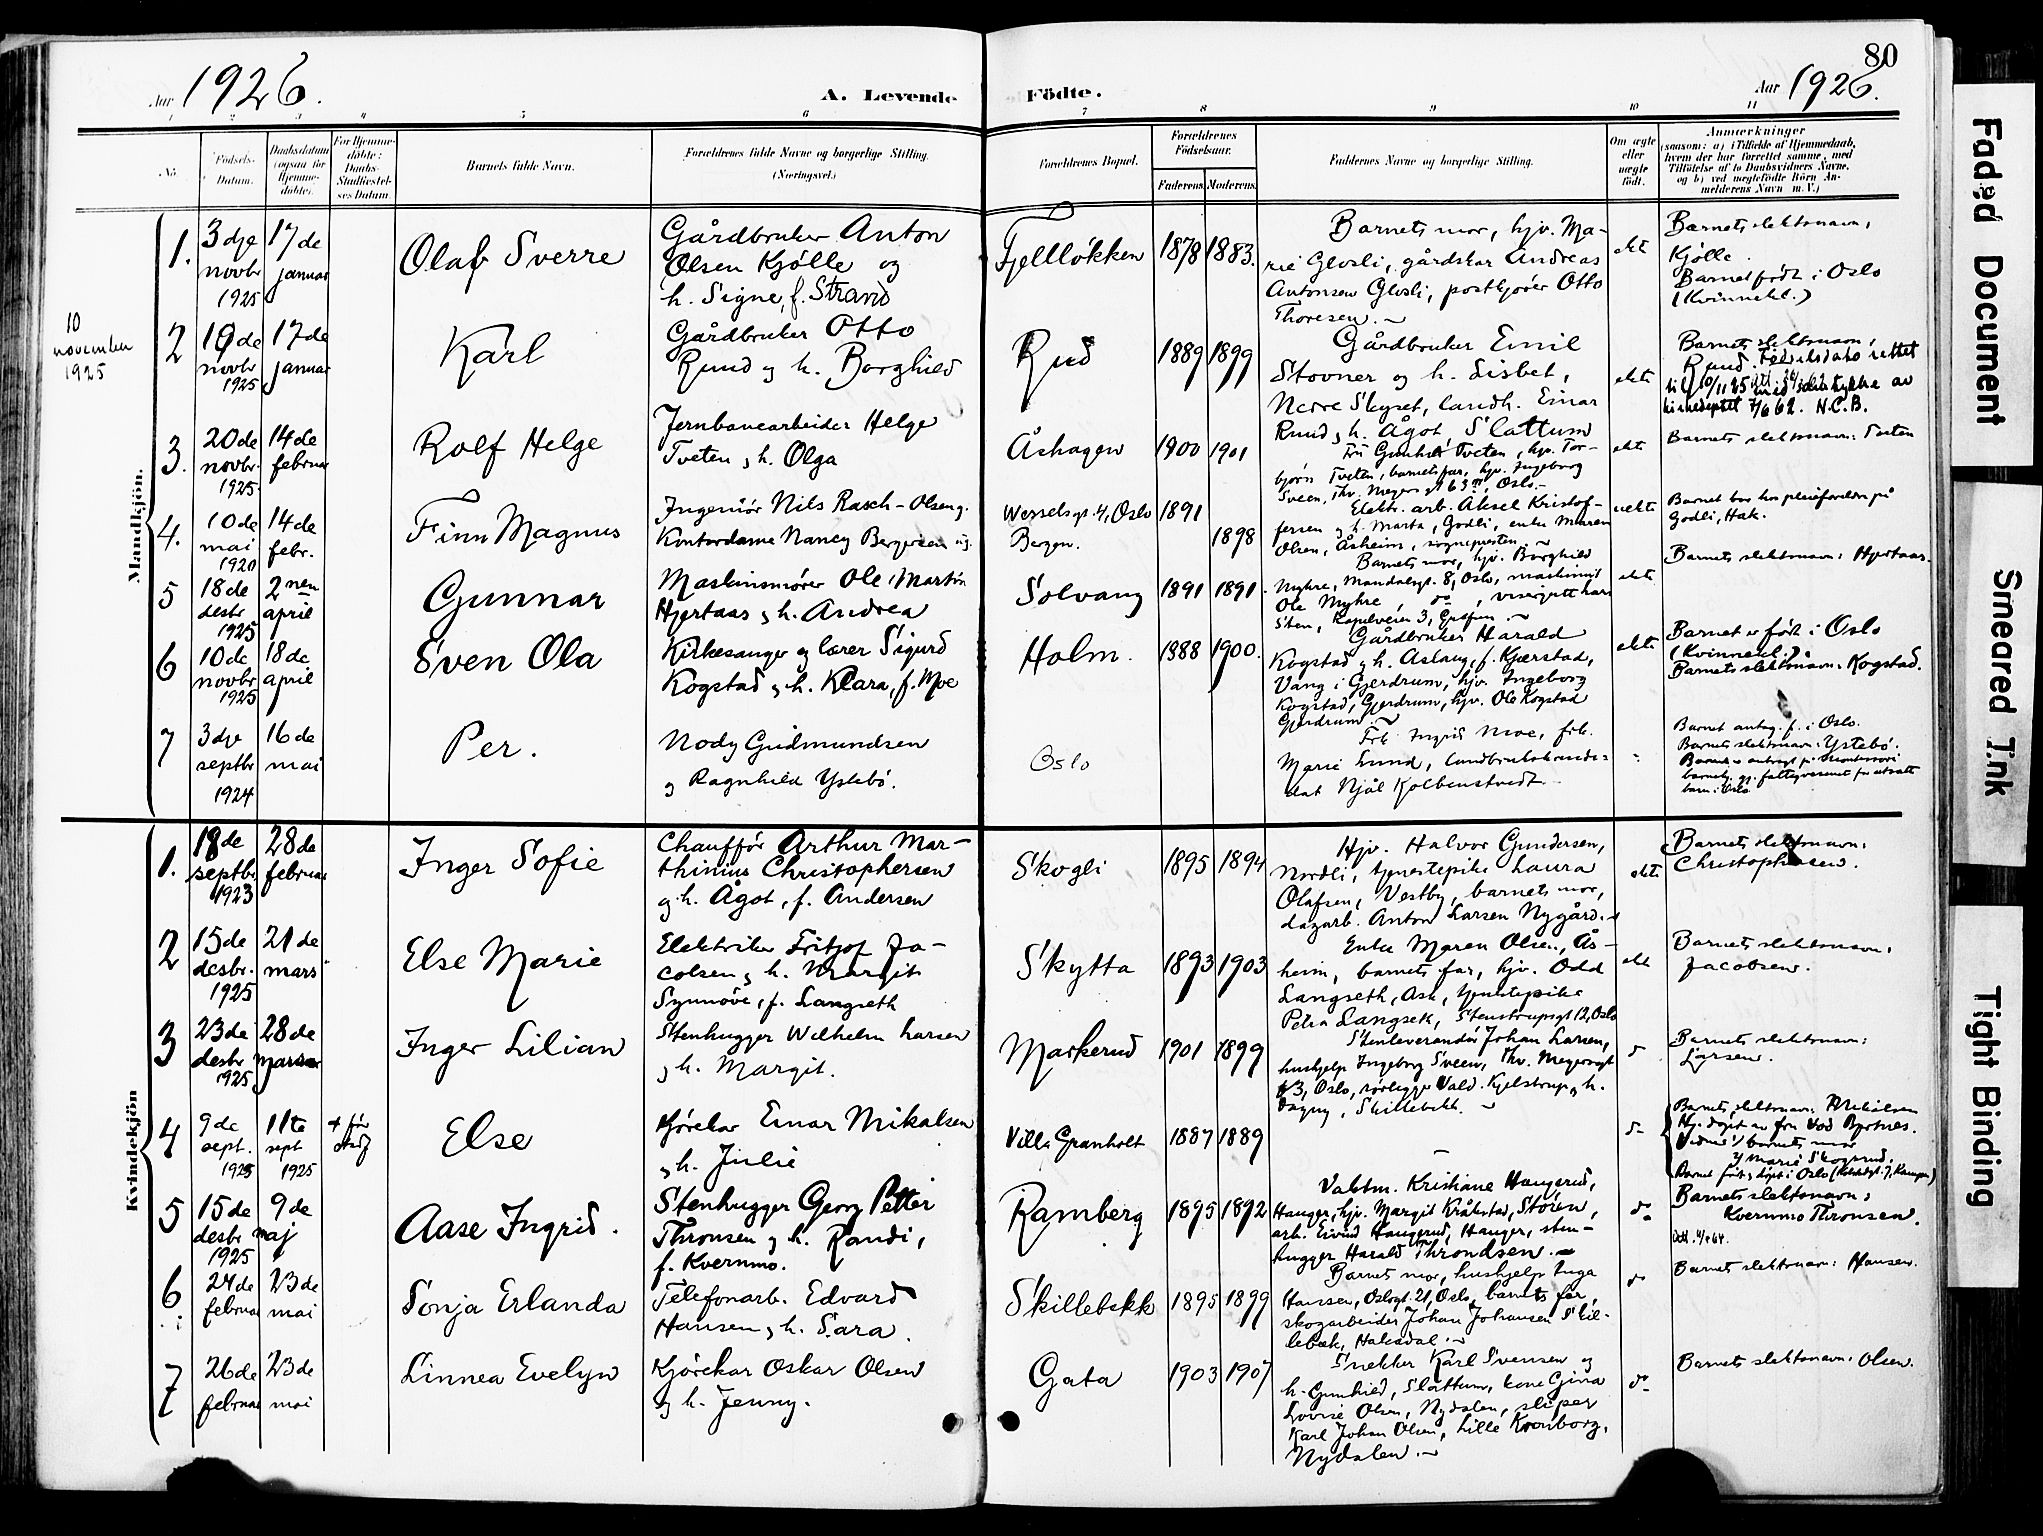 80
Aar 1926.
A. Levende
Födte.
Aar 1926.
1 2 3 4 5 6 7 8 9 10 11
No.
Födsels-
Datum.
Daabsdatum
(ogsaa for
Hjemme-
döbte).
For Hjemme-
döbte:
Daabs-
Stadfæstel-
ses Datum.
Barnets fulde Navn.
Forældrenes fulde Navne og borgerlige Stilling.
(Næringsvei.)
Forældrenes Bopæl.
Forældrenes
Födselsaar.
Faderens. Moderens.
Faddernes Navne og borgerlige Stilling.
Om ægte
eller
uægte
födt.
Anmærkninger
(saasom: a) i Tilfælde af Hjemmedaab,
hvem der har forrettet samme, med
Tilföielse af to Daabsvidners Navne,
og b) ved uægtefödte Börn An-
melderens Navn m. V.)
Mandkjön.
1.
3dje
novbr
1925
17de
januar
Olaf Sverre
Gårdbruker Anton
Olsen Kjölle og
h. Signe, f. Strand
Fjellløkken
1878 1883.
Barnets mor, hjv. Ma-
rie Glosli, gårdskar Andreas
Antonsen Glosli, postkjører Otto
Thoresen.
ekte
Barnets slektsnavn:
Kjølle.
Barnet født i Oslo
(Kvinnekl.)
10
november
1925
2
19de
novbr
1925
17de
januar
Karl
Gårdbruker Otto
Ruud og h. Borghild
Rud
1889 1899
Gårdbruker Emil
Stovner og h. Lisbet,
Nedre Skyset, landh. Einar
Ruud, h. Ågot Slattum
ekte
Barnets slektsnavn:
Ruud. Fødselsdato rettet
til 10/11 25
7/6 62. N.C.B.
3.
20de
novbr.
1925.
14de
februar
Rolf Helge
Jernbanearbeider Helge
Tveten, h. Olga
Åshagen
1900 1901
Gunhild Tveten, hjv. Tor-
bjørn Tveten, barnets far, hjv. Ingeborg
Sveen, Thv. Meyers gt 63, Oslo.
ekte
Barnets slektsnavn: Tveten
4.
10de
mai
1920
14de
febr.
Finn Magnus
Ingeniør Nils Rasch-Olsen og
Kontordame Nancy Bergersen
Wesselsgt. 4, Oslo
Bergen.
1891
1898
Elektr. arb. Aksel Kristof-
fersen og h. Marta, Godli, enke Maren
Olsen, Åsheim, sognepresten.
uekte
Barnet bor hos pleieforeldre på
Godli, Hak.
5
18de
desbr
1925
2nen
april
Gunnar
Maskinsmører Ole Martin
Hjertaas, h. Andrea
Solvang
1891 1891.
Barnets mor, hjv. Borghild
Myhre, Mandalsgt. 8, Oslo, maskinist
Ole Myhre, do, visergutt Hans
Sten, Kapelveien 3, Grefsen.
ekte
Barnets slektsnavn: Hjertaas.
6
10de
novbr
1925
18de
april
Sven Ola
Kirkesanger og lærer Sigurd
Kogstad, h. Klara, f. Moe
Holm.
1888 1900.
Gårdbruker Harald
Kogstad, h. Aslaug, f. Kjærstad,
Vang i Gjerdrum, hjv. Ingeborg
Kogstad, Gjerdrum, hjv. Ole Kogstad
Gjerdrum.
ekte
Barnet er født i Oslo
(Kvinnekl.).
Barnets slektsnavn: Kogstad.
7
3dje
septbr
1924
16de
mai
Per.
Nody Gudmundsen
og Ragnhild Ystebø.
Oslo
Frk. Ingrid Moe, frk.
Marie Lund, landbrukskandi-
dat Njål Kolbenstvedt
Barnet antag. f. i Oslo.
Barnets slektsnavn: Ystebø.
Barnet er anbragt på Montessori
barnehj. gj. fattigvesenet for utsatte
barn i Oslo
Kvindekjön
1.
18de
septbr
1923
28de
februar
Inger Sofie
Chauffør Arthur Mar-
thinius Christophersen
og h. Ågot, f. Andersen
Skogli
1895 1894
Hjv. Halvor Gundersen,
Nordli, tjenestepike Laura
Olafsen, Vestby, barnets mor,
dagarb. Anton Larsen Nygård.
ekte
Barnets slektsnavn:
Christophersen.
2
15de
desbr.
1925
21de
mars
Else Marie
Elektriker Fritjof Ja-
cobsen, h. Margit
Synnøve, f. Langseth
Skytta
1893 1903
Enke Maren Olsen, Ås-
heim, barnets far, hjv. Odd
Langseth, Ask, tjenestepike
Petra Langset, Stenstrupsgt 12, Oslo
ekte
Barnets slektsnavn:
Jacobsen.
3
23de
desbr
1925.
28de
mars
Inger Lilian
Stenhugger Wilhelm Larsen
, h. Margit.
Markerud
1901 1899
Stenleverandør Johan Larsen,
hushjelp Ingeborg Sveen, Thv. Meyersgt
63, Oslo, rørlegger Vald. Kjelstrup, h.
Dagny, Skillebekk.
Barnets slektsnavn:
Larsen.
4
9de
sept.
1925
11te
sept
1925
Else
Kjørekar Einar Mikalsen
, h. Julie
Villa Granholt
1887 1889
Barnets slektsnavn: Mikalsen
Hj. døpt av fru Vod Bjertnes.
Vidner 1/ barnets mor
2/ Marie Skogrud.
5
15de
desbr
1925
9de
maj
Aase Ingrid.
Stenhugger Georg Petter
Thronsen og h. Randi,
f. Kvernmo.
Ramberg
1895 1892
Vaktm. Kristiane Haugerud,
Hauger, hjv. Margit Kråkstad, Støren,
arb. Eivind Haugerud, Hauger, sten-
hugger Harald Throndsen.
do
Barnets slektsnavn:
Kvernmo Thronsen.
6
24de
februar
23de
mai
Sonja Erlanda
Telefonarb. Edvard
Hansen, h. Sara.
Skillebekk
1895 1899
Barnets mor, hushjelp Inga
Hansen, Oslogt. 21, Oslo, barnets far,
skogarbeider Johan Johansen Skil-
lebæk, Hakadal.
do
Barnets slektsnavn: Hansen.
7
26de
februar
23de
mai
Linnea Evelyn
Kjørekar Oskar Olsen
og h. Jenny.
Gata
1903 1907
Snekker Karl Svensen og
h. Gunhild, Slattum, kone Gina
Lovise Olsen, Nydalen, sliper
Karl Johan Olsen, Lille Kronborg,
Nydalen.
do
Barnets slektsnavn: Olsen.
Faded Document
Smeared Ink
Tight Binding